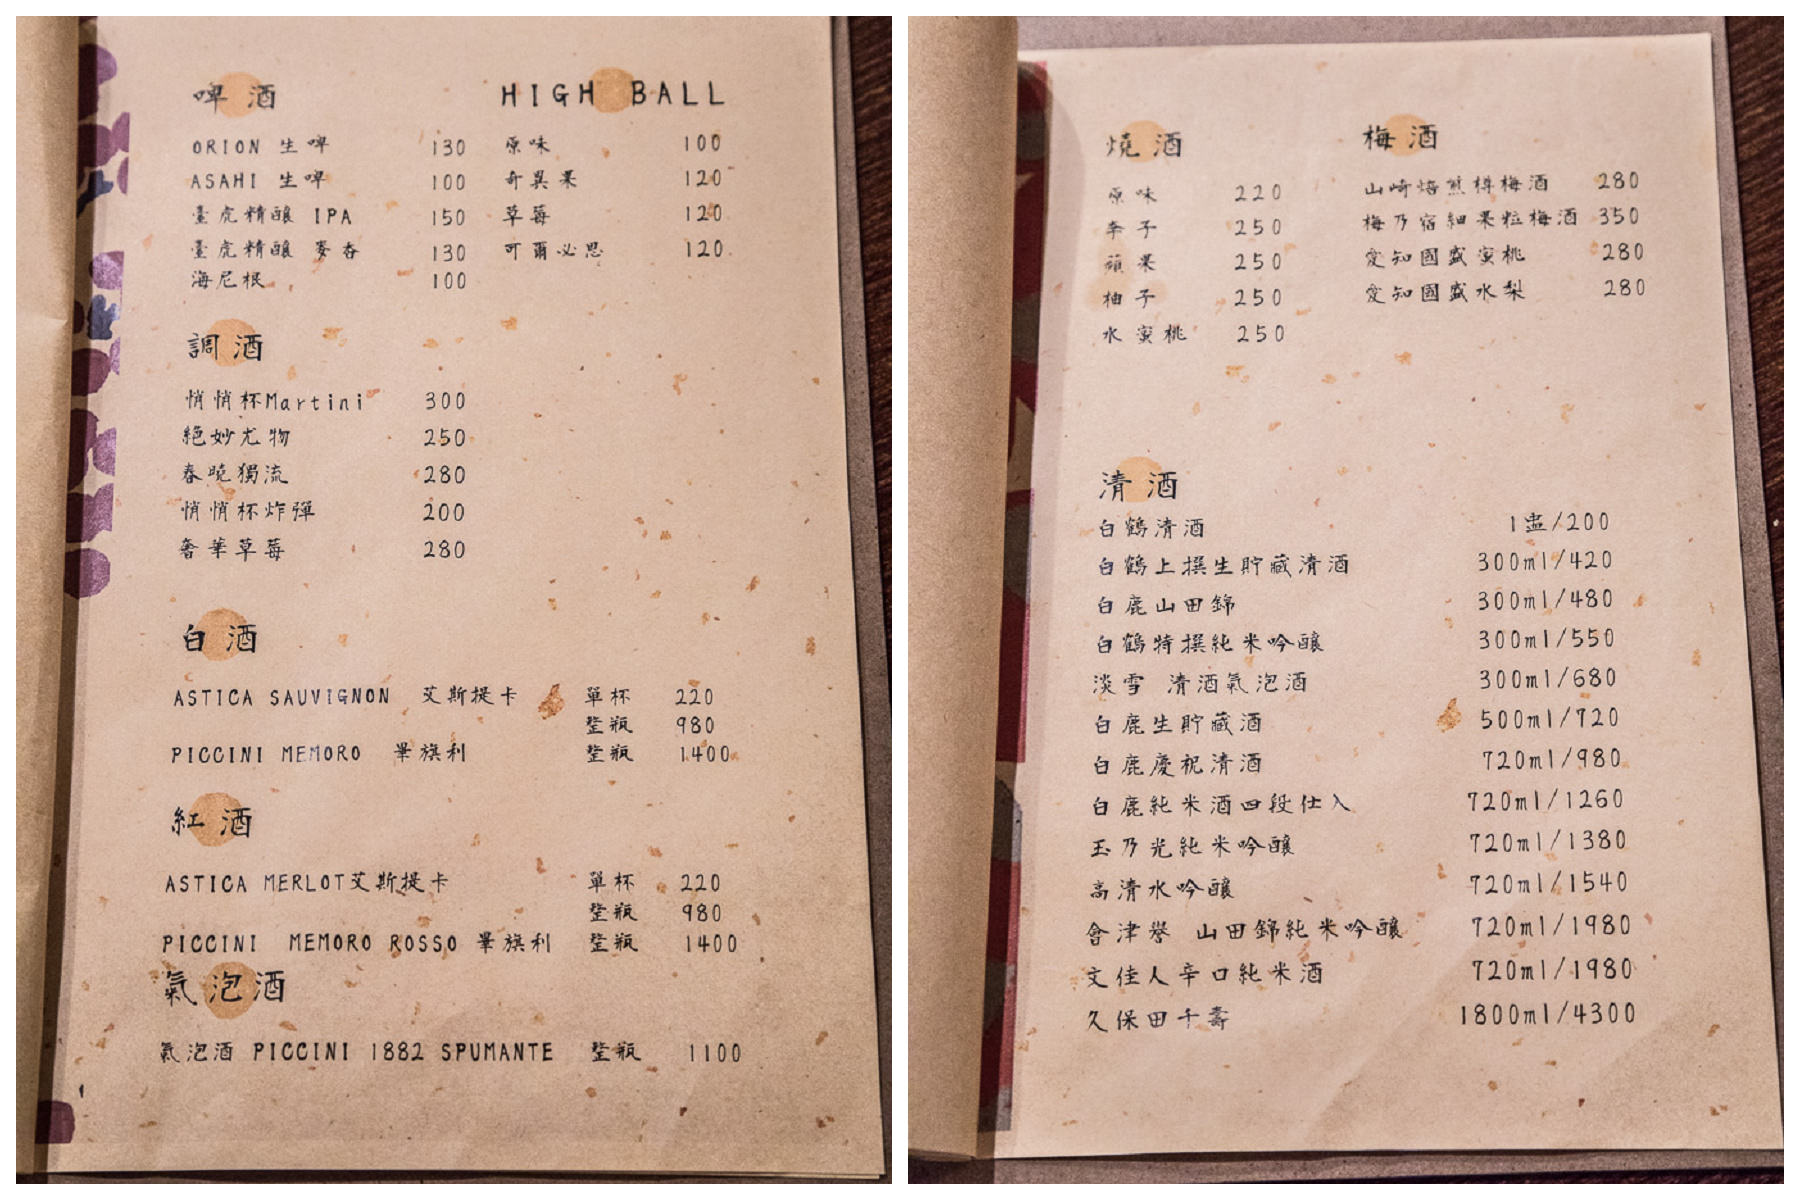 啤酒
ORION 生啤 130
ASAHI 生啤 100
臺虎精釀 IPA 150
臺虎精釀 麥香 130
海尼根 100
HIGH BALL
原味 100
奇異果 120
草莓 120
可爾必思 120
調酒
悄悄杯Martini 300
絕妙尤物 250
春曉獨流 280
悄悄杯炸彈 200
奢華草莓 280
白酒
ASTICA SAUVIGNON 艾斯提卡 單杯 220
整瓶 980
PICCINI MEMORO 畢旗利 整瓶 1400
紅酒
ASTICA MERLOT艾斯提卡 單杯 220
整瓶 980
PICCINI MEMORO ROSSO 畢旗利 整瓶 1400
氣泡酒
氣泡酒 PICCINI 1882 SPUMANTE 整瓶 1100
燒酒
原味 220
李子 250
蘋果 250
柚子 250
水蜜桃 250
梅酒
山崎焙煎樽梅酒 280
梅乃宿細果粒梅酒 350
愛知國盛蜜桃 280
愛知國盛水梨 280
清酒
白鶴清酒 1盅/200
白鶴上撰生貯藏清酒 300ml/420
白鹿山田錦 300ml/480
白鶴特撰純米吟釀 300ml/550
淡雪 清酒氣泡酒 300ml/680
白鹿生貯藏酒 500ml/720
白鹿慶祝清酒 720ml/980
白鹿純米酒四段仕入 720ml/1260
玉乃光純米吟釀 720ml/1380
高清水吟釀 720ml/1540
會津譽 山田錦純米吟釀 720ml/1980
文佳人辛口純米酒 720ml/1980
久保田千壽 1800ml/4300